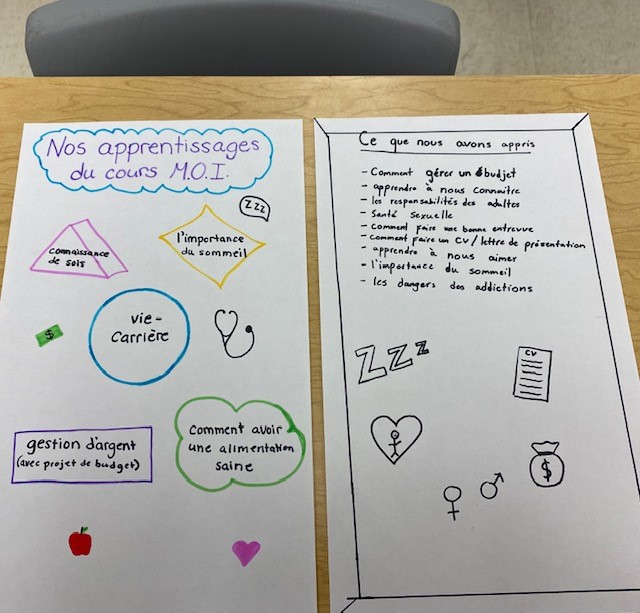 Nos apprentissages
du cours M.O.I.
zzz
connaissance
de sois
l'importance
du sommeil
vie-
carrière
$
gestion d'argent
(avec projet de budget)
Comment avoir
une alimentation
saine
Ce que nous avons appris
- Comment gérer un budget
- apprendre à nous connaître
- les responsabilités des adultes
- Santé sexuelle
- Comment faire une bonne entrevue
- Comment faire un CV / lettre de présentation
- apprendre à nous aimer
- l'importance du sommeil
- les dangers des addictions
Zzz
CV
$